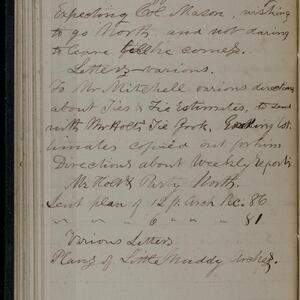 Expecting Col Mason, wishing
to go North, and not daring
to leave till he comes.
Letters – various.
To Mr Mitchell various directions
about Ties & Tie Estimates, to send
with Mr Holts Tie Book, Est
imates copied out for him
Directions about Weekly reports
Mr Holt & Party North.
Sent plan of 12 ft. Arch Sec. 86
" " " 6 " " " 81
Various Letters
Plans of Little Muddy Arches.